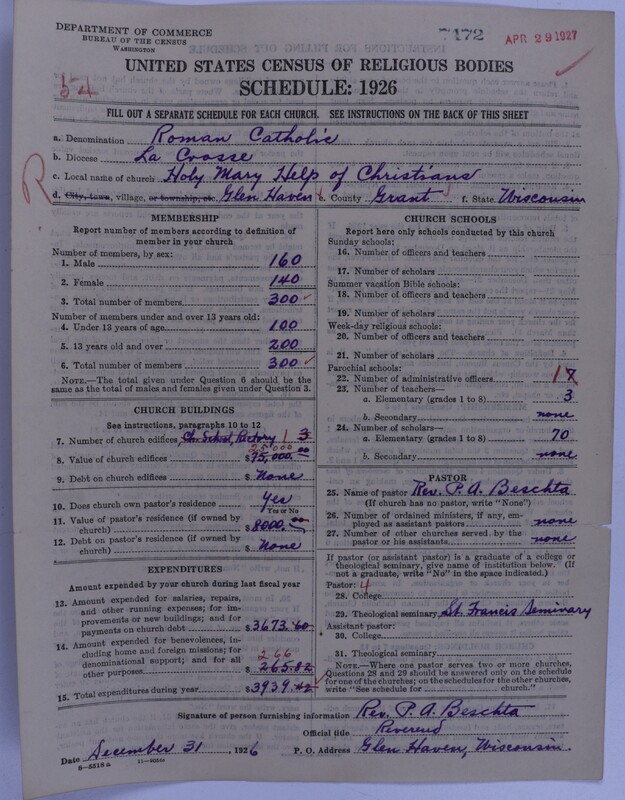 DEPARTMENT OF COMMERCE
BUREAU OF THE CENSUS
WASHINGTON
7172
APR 29 1927
UNITED STATES CENSUS OF RELIGIOUS BODIES
54
SCHEDULE: 1926
FILL OUT A SEPARATE SCHEDULE FOR EACH CHURCH. SEE INSTRUCTIONS ON THE BACK OF THIS SHEET
a. Denomination Roman Catholic
b. Diocese La Crosse
c. Local name of church Holy Mary Help of Christians
R
d. City, town, village, or township, etc. Glen Haven e. County Grant f. State Wisconsin
MEMBERSHIP
Report number of members according to definition of member in your church
Number of members, by sex:
1. Male 160
2. Female 140
3. Total number of members 300
Number of members under and over 13 years old:
4. Under 13 years of age 100
5. 13 years old and over 200
6. Total number of members 300
NOTE.—The total given under Question 6 should be the same as the total of males and females given under Question 3.
CHURCH BUILDINGS
See instructions, paragraphs 10 to 12
7. Number of church edifices Ch. School, Rectory 1 3
25,000
8. Value of church edifices $ 75,000.00
9. Debt on church edifices $ None
10. Does church own pastor's residence Yes
Yes or No
11. Value of pastor's residence (if owned by church) $ 8000.00
12. Debt on pastor's residence (if owned by church) $ None
EXPENDITURES
Amount expended by your church during last fiscal year
13. Amount expended for salaries, repairs, and other running expenses; for improvements or new buildings; and for payments on church debt $ 3673.60
14. Amount expended for benevolences, including home and foreign missions; for denominational support; and for all other purposes 266 $ 265.82
15. Total expenditures during year $ 3939.42
CHURCH SCHOOLS
Report here only schools conducted by this church
Sunday schools:
16. Number of officers and teachers
17. Number of scholars
Summer vacation Bible schools:
18. Number of officers and teachers
19. Number of scholars
Week-day religious schools:
20. Number of officers and teachers
21. Number of scholars
Parochial schools:
22. Number of administrative officers 1
23. Number of teachers—
a. Elementary (grades 1 to 8) 3
b. Secondary none
24. Number of scholars—
a. Elementary (grades 1 to 8) 70
b. Secondary none
PASTOR
25. Name of pastor Rev. P. A. Beschta
(If church has no pastor, write "None")
26. Number of ordained ministers, if any, employed as assistant pastors none
27. Number of other churches served by the pastor or his assistants none
If pastor (or assistant pastor) is a graduate of a college or theological seminary, give name of institution below. (If not a graduate, write "No" in the space indicated.)
Pastor: 4
28. College
29. Theological seminary St. Francis Seminary
Assistant pastor:
30. College
31. Theological seminary
NOTE.—Where one pastor serves two or more churches, Questions 28 and 29 should be answered only on the schedule for one of the churches; on the schedules for the other churches, write "See schedule for ________ church."
Signature of person furnishing information Rev. P. A. Beschta
Official title Reverend
Date December 31, 1926 P. O. Address Glen Haven, Wisconsin.